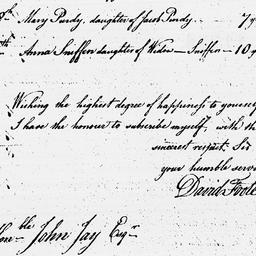 8th Mary Purdy, daughter of Jacob Purdy.. — 7 y
Anna Sniffen daughter of Widow — Sniffen — 10 y
Wishing the highest degree of happiness to yourse
I have the honour to subscribe myself, with the
sincerest respect. Sir
your humble serv
David Foote
ble John Jay Esqr